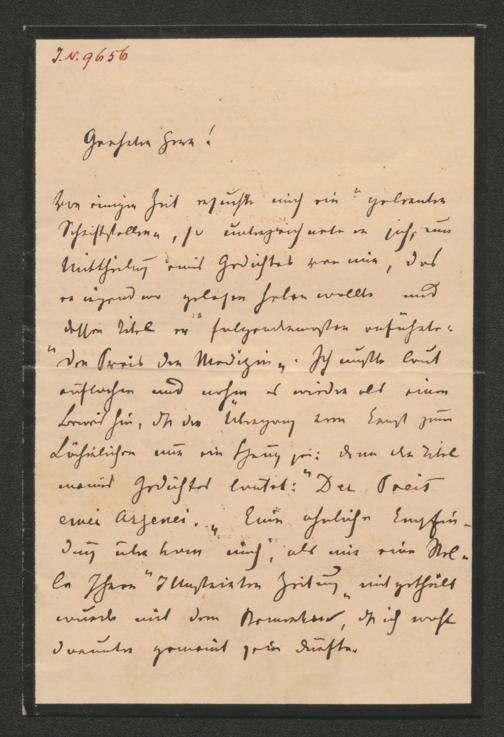 J.N. 9656
Geehrter Herr!
Vor einiger Zeit ersuchte mich ein "gelernter
Schriftsteller", so unterzeichnete er sich, um
Mittheilung eines Gedichtes von mir, das
er irgendwo gelesen haben wollte und
dessen Titel er folgendermaßen anführte:
"Der Preis der Medizin". Ich mußte laut
auflachen und nahm es wieder als einen
Beweis hin, daß der Übergang vom Ernst zum
Lächerlichen nur ein sei: denn der Titel
meines Gedichtes lautet: "Der Preis
einer Arzenei." Eine ähnliche Empfin-
dung überkam mich, als mir eine Stel-
le Ihrer "Illustrirten Zeitung" mitgetheilt
wurde mit dem Bemerken, daß ich wohl
darunter gemeint sein dürfte.